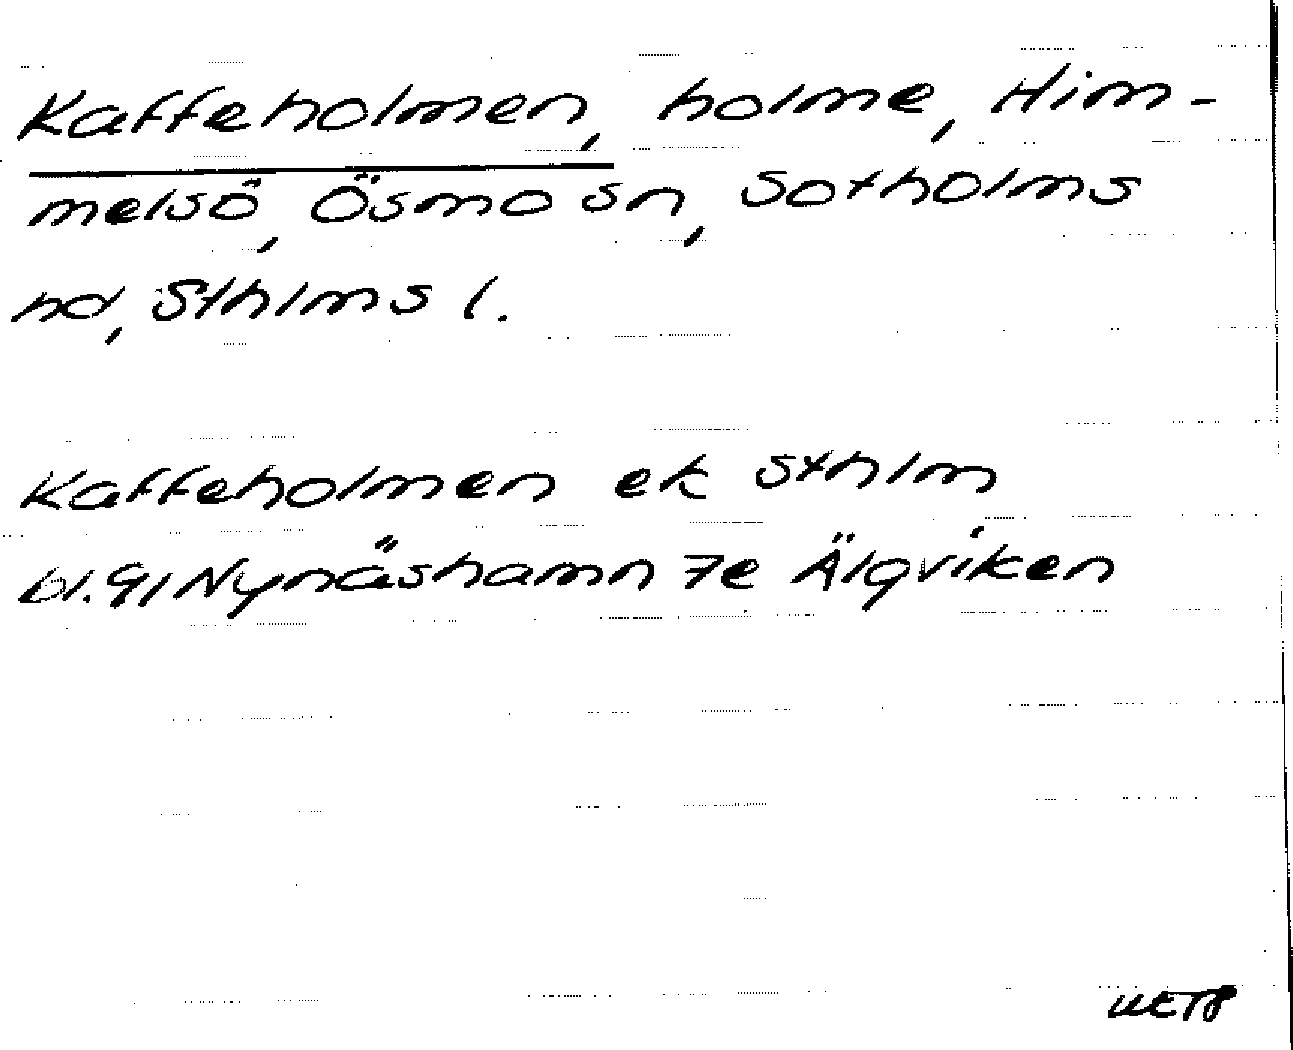 Kaffeholmen, holme, Him-
melsö, Ösmo sn, Sotholms
hd, Sthlms l.
Kaffeholmen ek Sthlm
bl. 91 Nynäshamn 7e Älgviken